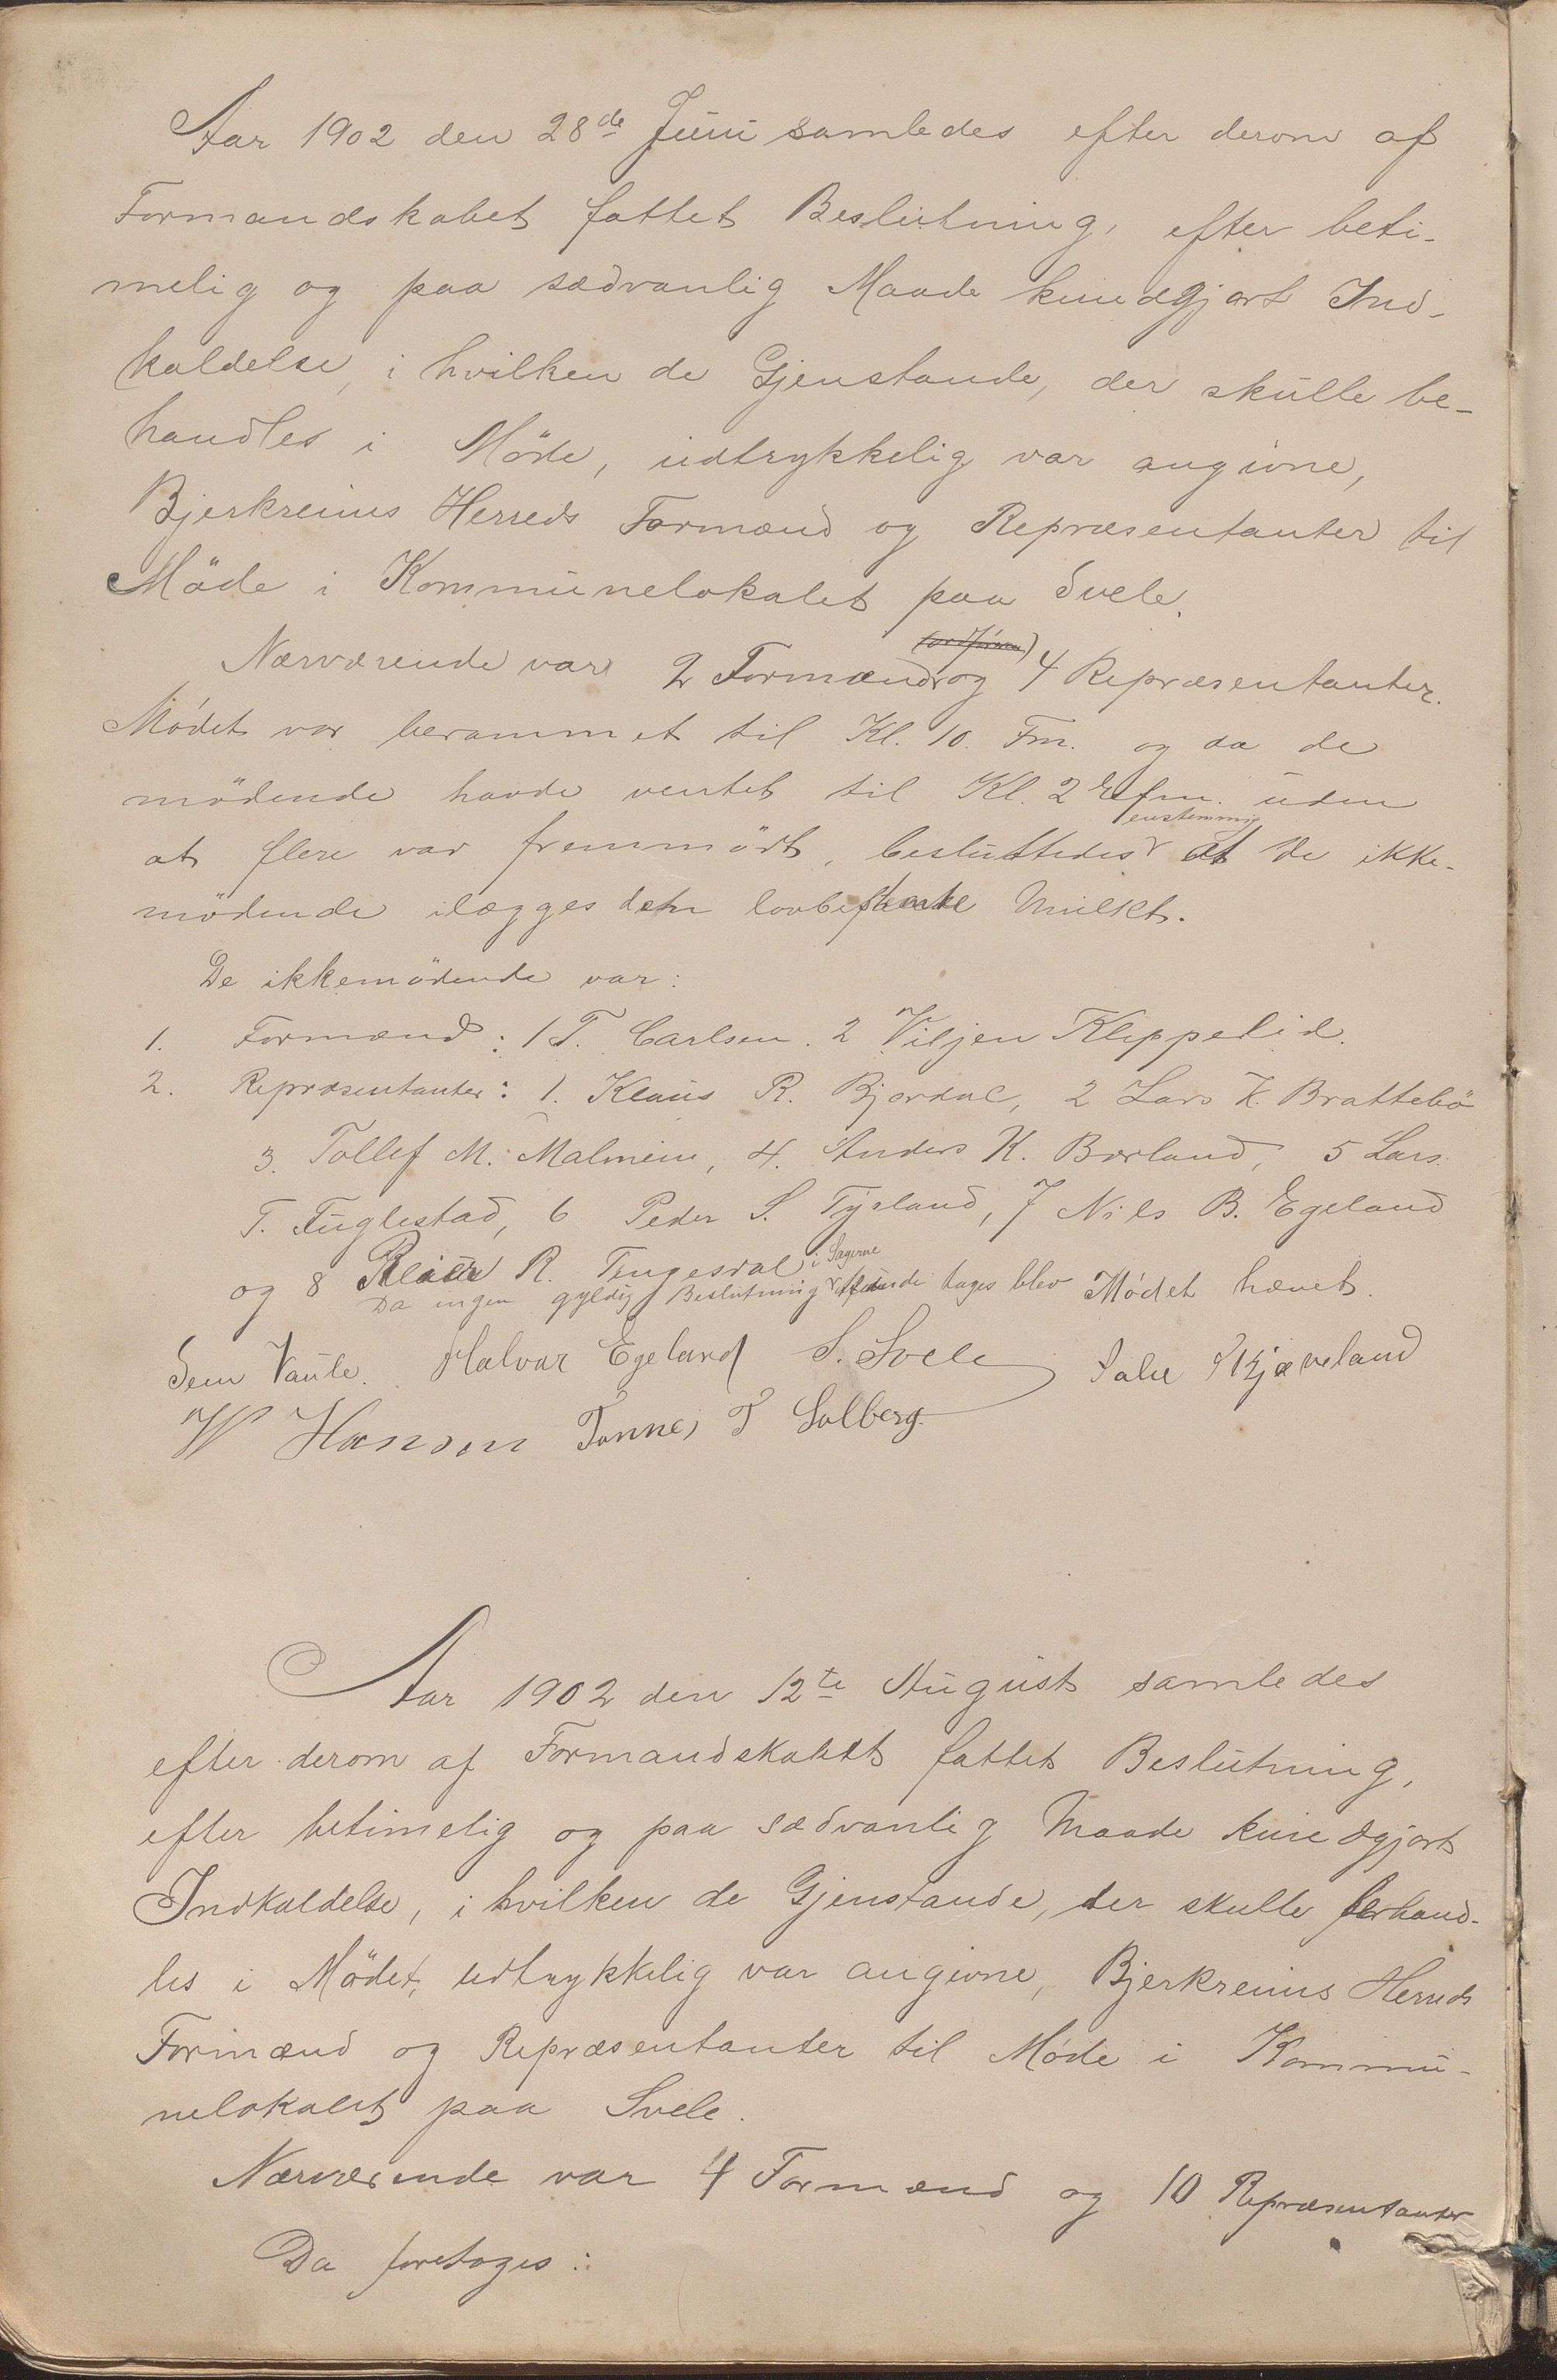 Aar 1902 den 28de Juni samledes efter derom af
Formandskabet fattet Beslutning, efter beti-
melig og paa sædvanlig Maade kundgjort Ind-
kaldelse, i hvilken de Gjenstande, der skulle be-
handles i Möde, udtrykkelig var angivne,
Bjerkreims Herreds Formænd og Repræsentanter til
Möde i Kommunelokalet paa Svele.
Nærværende var 2 Formænd og 4 Repræsentanter.
Mødet var berammet til Kl. 10. Fm. og da de
mödende havde ventet til Kl. 2 Efm. uden
enstemmig
at flere var fremmödt, besluttedes at de ikke-
mödende ilægges den lovbestemte Mulkt.
De ikkemödende var:
1. Formænd: 1 T. Carlsen. 2 Viljen Kleppelid.
2. Repræsentanter: 1. Klaus R. Bjordal, 2 Lars K. Brattebö
3. Tollef M. Malmein, 4. Anders K. Børland, 5 Lars
T. Fuglestad, 6 Peder S. Tysland, 7 Nils B. Egeland
og 8 R. Tengesdal
i Sagerne
Da ingen gyldig Beslutning kunde tages blev Mødet hævet.
Sem Vaule. Halvar Egeland S. Svele Salve Skjæveland
W Hansen Tønnes T Solberg.
Aar 1902 den 12te August samledes
efter derom af Formandskabet fattet Beslutning,
efter betimelig og paa sædvanlig Maade kundgjort
Indkaldelse, i hvilken de Gjenstande, der skulle forhand-
les i Mødet, udtrykkelig var angivne, Bjerkreims Herreds
Formænd og Repræsentanter til Møde i Kommu-
nelokalet paa Svele.
Nærværende var 4 Formænd og 10 Repræsentanter
Da foretoges: